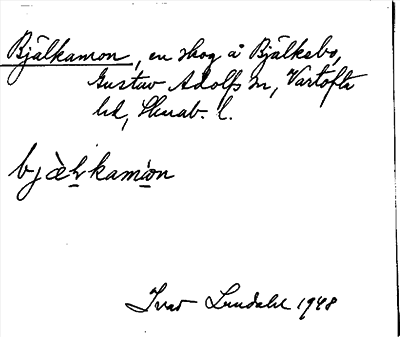 Bjälkamon, en skog å Bjälkebo,
Gustav Adolfs sn, Vartofta
hd, Skarab. l.
bjæ̀ḷkamón
Ivar Lundahl 1948